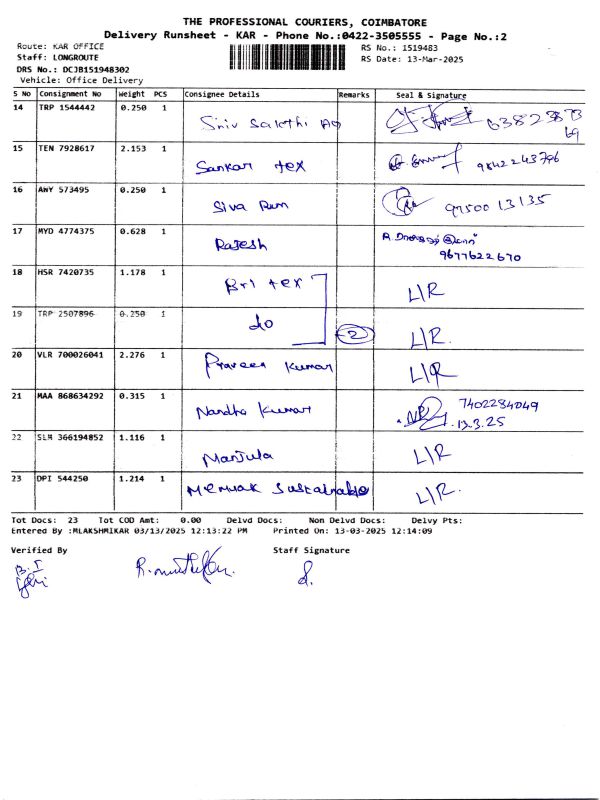 THE PROFESSIONAL COURIERS, COIMBATORE
Delivery Runsheet - KAR - Phone No.:0422-3505555 - Page No.:2
Route: KAR OFFICE
RS No.: 1519483
Staff: LONGROUTE
RS Date: 13-Mar-2025
DRS No.: DCJB151948302
Vehicle: Office Delivery
S No Consignment No Weight PCS Consignee Details Remarks Seal & Signature
14 TRP 1544442 0.250 1 Sakthi
15 TEN 7928617 2.153 1 Sankar tex 9842243796
16 AWY 573495 0.250 1 Siva Ram 9750013135
17 MYD 4774375 0.628 1 Rajesh 9677622670
18 HSR 7420735 1.178 1 Bri tex L/R
19 TRP 2507896 0.250 1 do 2 L/R.
20 VLR 700026041 2.276 1 Praveen Kumar L/R
21 MAA 868634292 0.315 1 Nandha Kumar 7402284049
13.3.25
22 SLM 366194852 1.116 1 Manjula L/R
23 DPI 544250 1.214 1 L/R.
Tot Docs: 23 Tot COD Amt: 0.00 Delvd Docs: Non Delvd Docs: Delvy Pts:
Entered By :MLAKSHMIKAR 03/13/2025 12:13:22 PM Printed On: 13-03-2025 12:14:09
Verified By Staff Signature